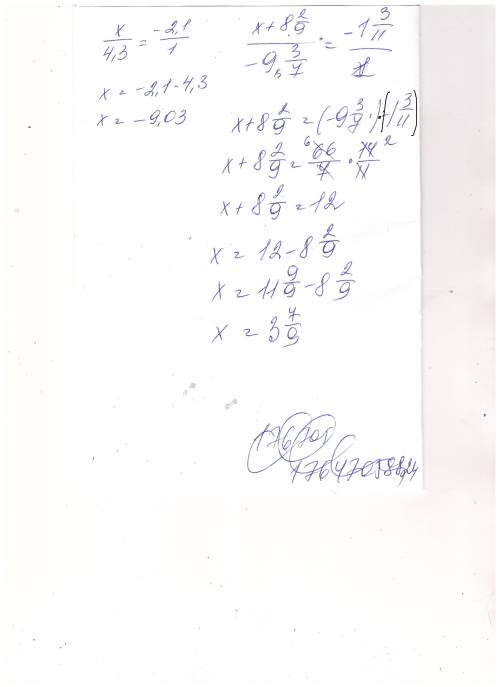 x/4,3 = -2,1/1
x = -2,1·4,3
x = -9,03
x+8 2/9 / -9 3/7 = -1 3/11 / 1
x+8 2/9 = (-9 3/7)·(-1 3/11)
x+8 2/9 = 66/7 · 14/11
x+8 2/9 = 12
x = 12-8 2/9
x = 11 9/9 - 8 2/9
x = 3 7/9